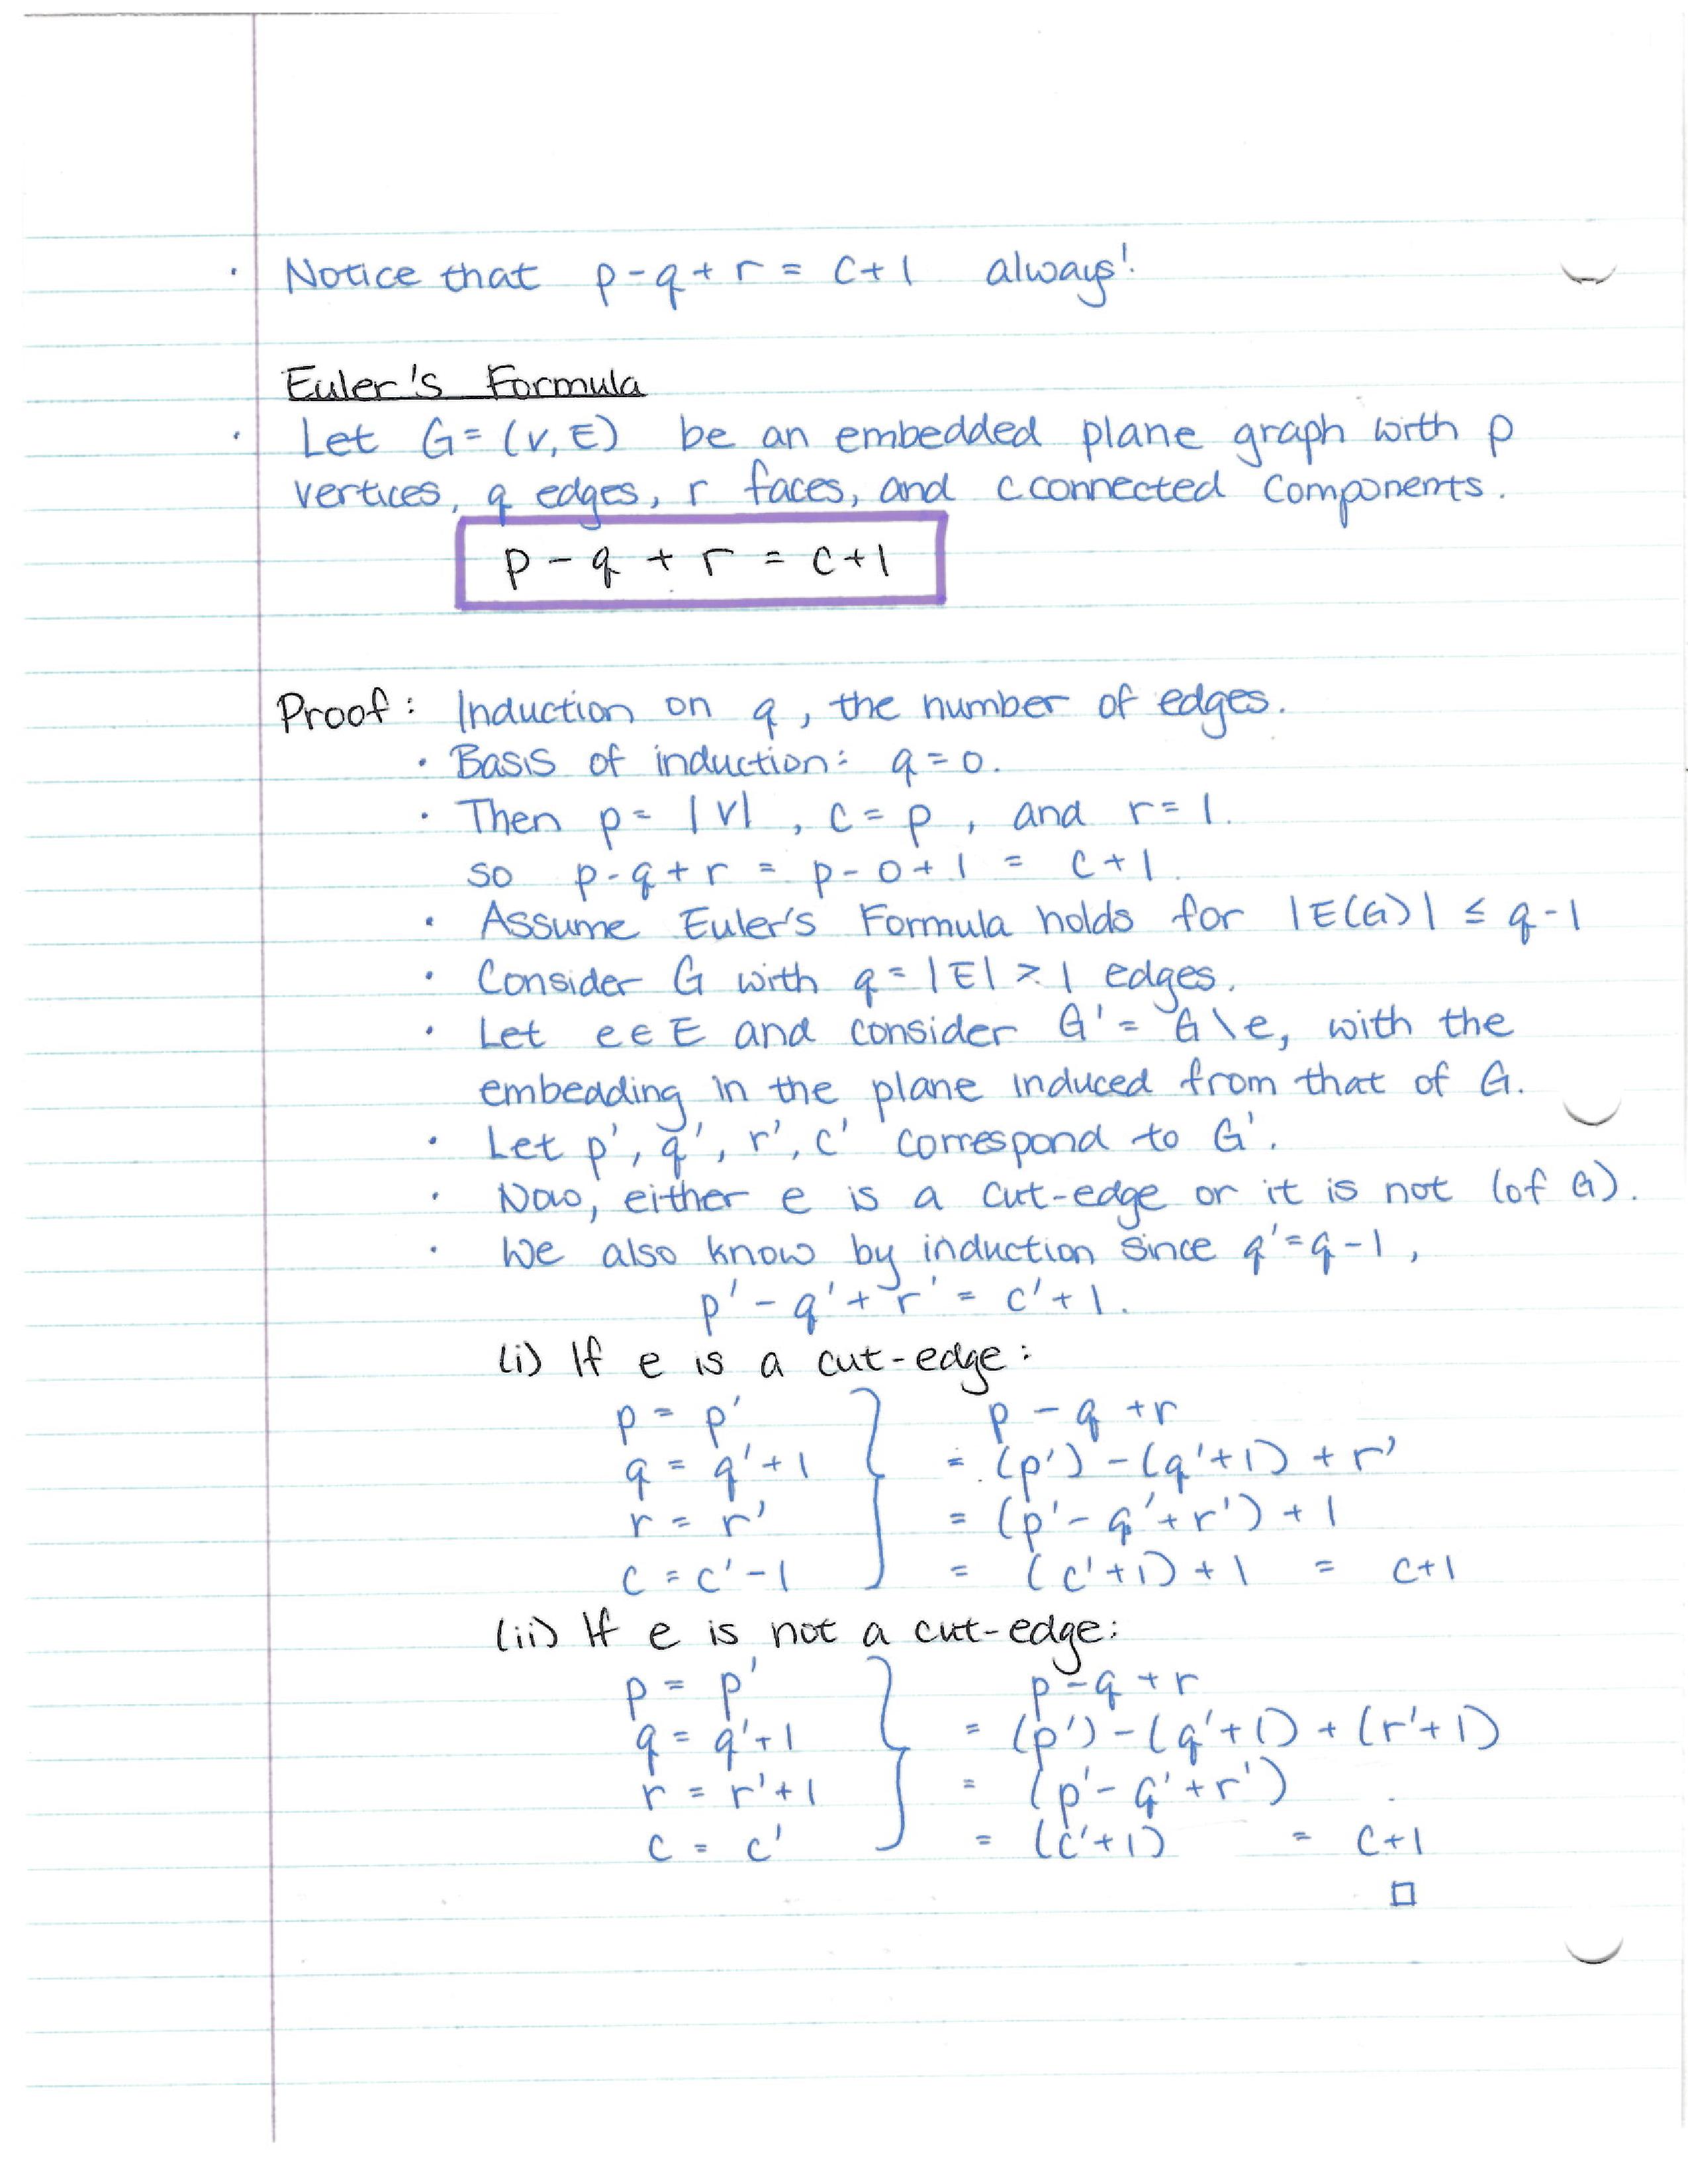 · Notice that p-q+r = c+1 always!
Euler's Formula
· Let G=(V,E) be an embedded plane graph with p
vertices, q edges, r faces, and c connected components.
p-q+r = c+1
Proof: Induction on q, the number of edges.
· Basis of induction: q=0.
· Then p= |V|, c=p, and r=1.
so p-q+r = p-0+1 = c+1.
· Assume Euler's Formula holds for |E(G)| ≤ q-1
· Consider G with q=|E|≥1 edges.
· Let e∈E and consider G'= G\e, with the
embedding in the plane induced from that of G.
· Let p', q', r', c' correspond to G'.
· Now, either e is a cut-edge or it is not (of G).
· We also know by induction since q'=q-1,
p'-q'+r' = c'+1.
(i) If e is a cut-edge:
p = p' p-q+r
q = q'+1 = (p')-(q'+1)+r'
r = r' = (p'-q'+r')+1
c = c'-1 = (c'+1)+1 = c+1
(ii) If e is not a cut-edge:
p = p' p-q+r
q = q'+1 = (p')-(q'+1)+(r'+1)
r = r'+1 = (p'-q'+r')
c = c' = (c'+1) = c+1
□